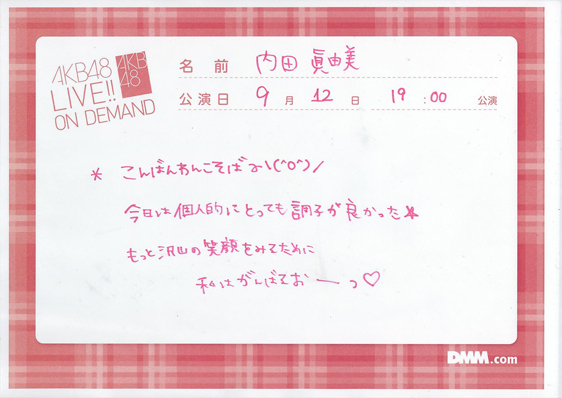 AKB48
LIVE!!
ON DEMAND
AKB
48
名 前 内田 眞由美
公演日 9 月 12 日 19 : 00 公演
* こんばんわんこそばぁ\(^o^)/
今日は個人的にとっても調子が良かった★
もっと沢山の笑顔をみてために
私はがんばるおーっ♡
DMM.com